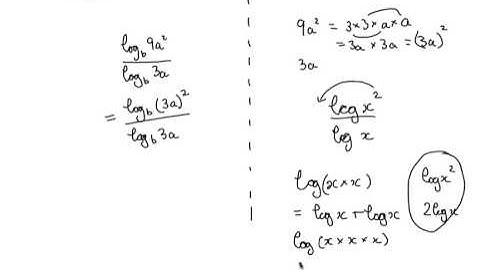 log_b 9a²
log_b 3a
= log_b (3a)²
log_b 3a
9a² = 3×3×a×a
= 3a × 3a = (3a)²
3a
log x²
log x
log(x×x)
= log x + log x
log(x×x×x)
log x²
2log x